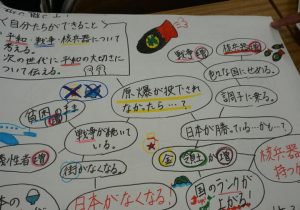 <自分たちができること>
平和・戦争・核兵器について
考える。
次の世代に平和の大切さ
について伝える。
戦争増
核兵器増
調子に乗る。
原爆が投下され
なかったら…?
貧困
戦争が続いて
いる。
日本が勝っている…かも…?
犠牲者増
街がなくなる。
金 領土が増
核兵器
持つ
日本がなくなる!
国のランクが
上がる。